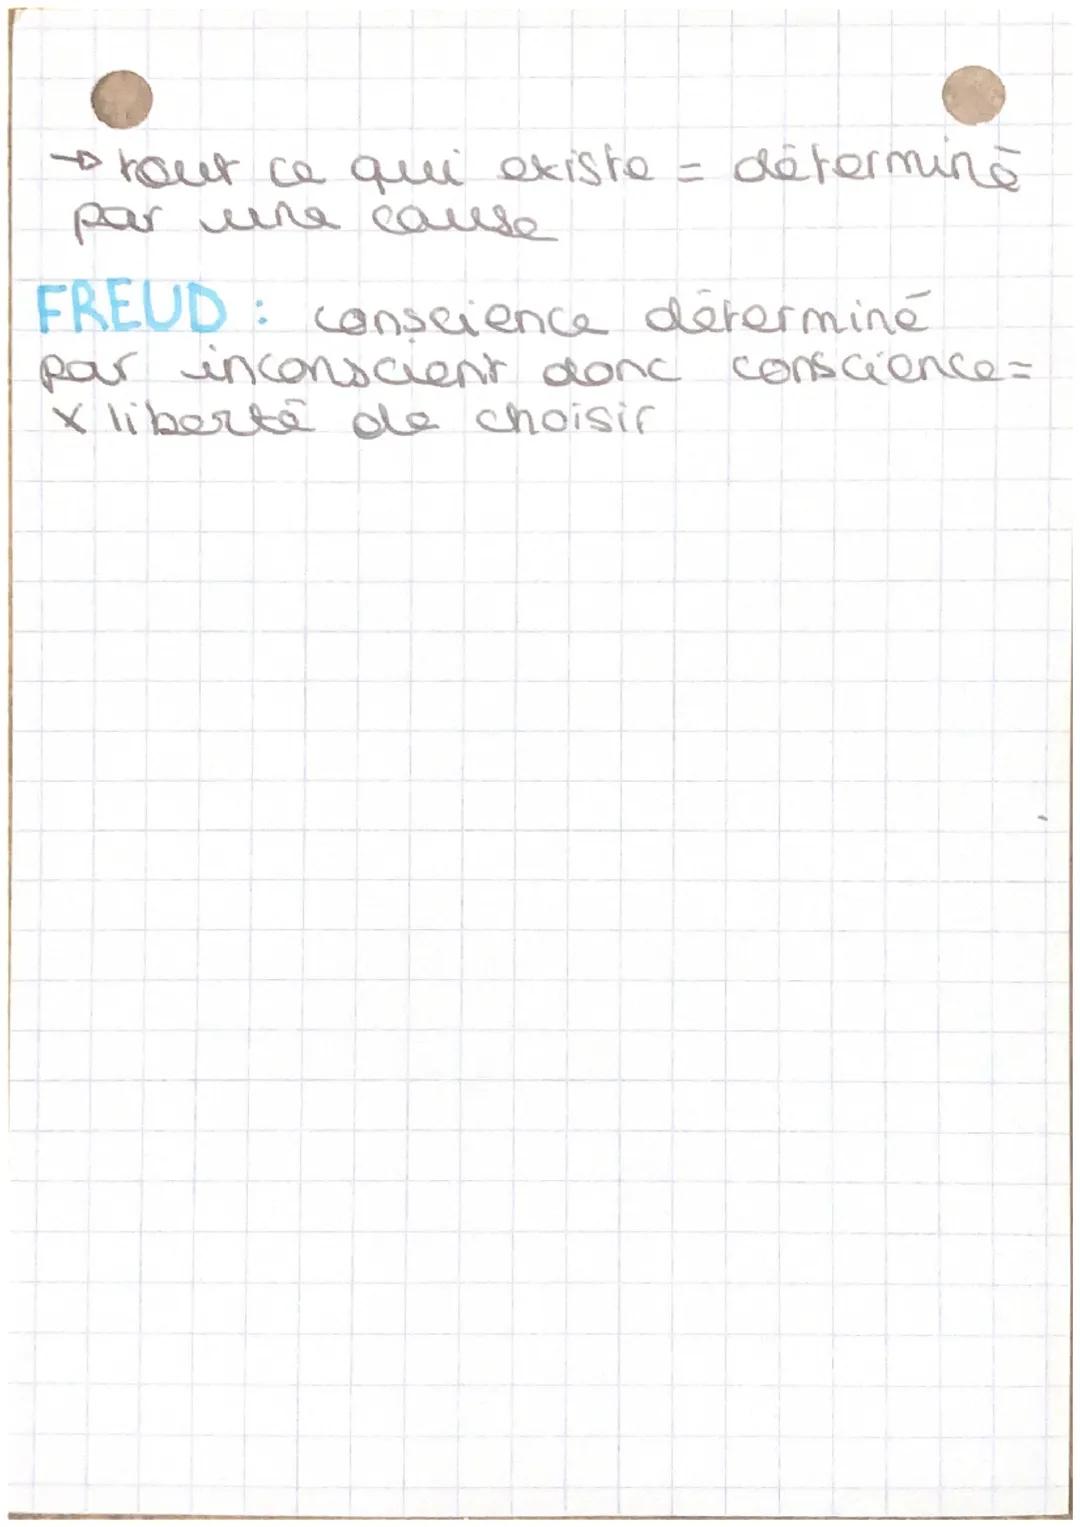 → tout ce qui existe = déterminé
par une cause
FREUD : conscience déterminé
par inconscient donc conscience=
X liberté de choisir